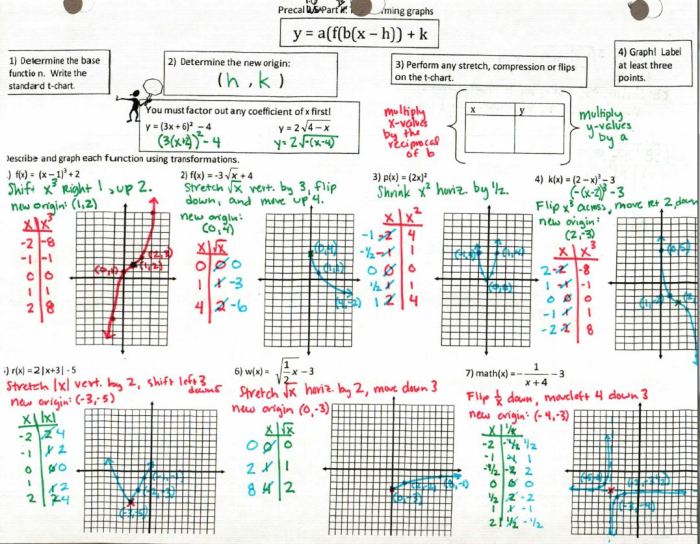 Precal
ming graphs
y = a(f(b(x − h)) + k
1) Determine the base
functio n. Write the
standard t-chart.
2) Determine the new origin:
(h , k)
3) Perform any stretch, compression or flips
on the t-chart.
4) Graph! Label
at least three
points.
You must factor out any coefficient of x first!
y = (3x + 6)² − 4
y = 2√4 − x
(3(x+2))² − 4
y = 2√-(x-4)
multiply
x-values
by the
reciprocal
of b
x y
multiply
y-values
by a
Describe and graph each function using transformations.
.) f(x) = (x − 1)³ + 2
Shift x³ Right 1, up 2.
new origin: (1,2)
x x³
-2 -8
-1 -1
0 0
1 1
2 8
(1,2)
2) f(x) = -3√x + 4
Stretch √x vert. by 3, flip
down, and move up 4.
new origin:
(0,4)
x √x
0 0 0
1 1 -3
4 2 -6
(0,4)
(1,1)
(4,-2)
3) p(x) = (2x)²
Shrink x² horiz. by ½.
x x²
-1 -2 4
-½ -1 1
0 0 0
½ 1 1
1 2 4
(0,0)
4) k(x) = (2 − x)³ − 3
(-(x-2))³ - 3
Flip x³ across, move rt 2, down
new origin:
(2,-3)
x x³
2 -2 -8
1 -1 -1
0 0 0
-1 1 1
-2 2 8
:) r(x) = 2|x+3| - 5
Stretch |x| vert. by 2, shift left 3
down 5
new origin: (-3,-5)
x |x|
-2 2 4
-1 1 2
0 0 0
1 1 2
2 2 4
(-3,-5)
6) w(x) = √1/2 x − 3
Stretch √x horiz. by 2, move down 3
new origin (0,-3)
x √x
0 0 0
2 1 1
8 4 2
(0,-3)
7) math(x) = − 1/x + 4 − 3
Flip 1/x down, move left 4 down 3
new origin: (-4,-3)
x 1/x
-2 -½ ½
-1 -1 1
-½ -2 2
0 0 0
½ 2 -2
1 1 -1
2 ½ -½